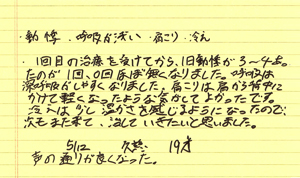 ・動悸 ・呼吸が浅い ・肩こり ・冷え
・1回目の治療を受けてから、1日動悸が3〜4あっ
たのが1回、0回ほぼ無くなりました。呼吸は
深呼吸がしやすくなりました。肩こりは肩から背中に
かけて軽くなったような気がしてよかったです。
冷えは少し温かさを感じるようになったので、
次もまた来て、治していきたいと思いました。
5/12 19才
声の通りが良くなった。